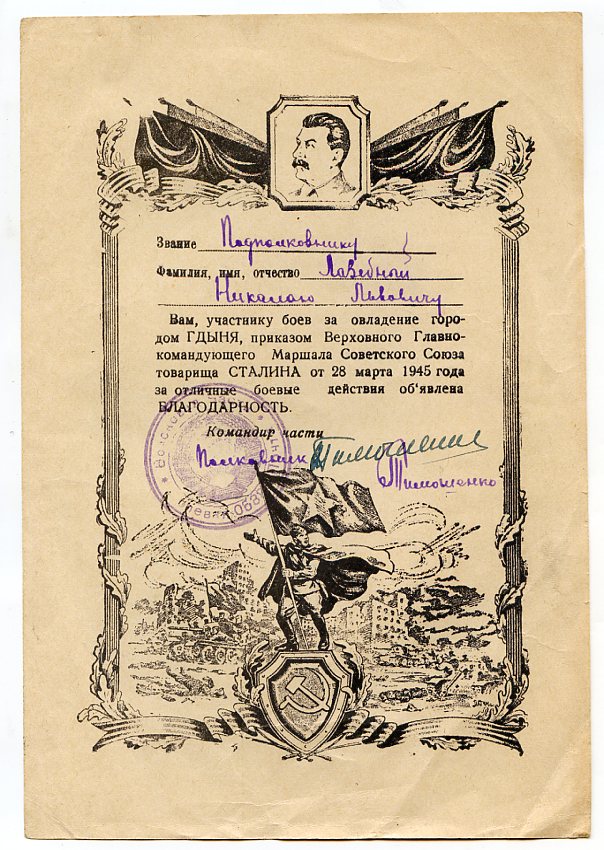 Звание Подполковнику
Фамилия, имя, отчество Лазебный
Николаю Львовичу
Вам, участнику боев за овладение горо-
дом ГДЫНЯ, приказом Верховного Главно-
командующего Маршала Советского Союза
товарища СТАЛИНА от 28 марта 1945 года
за отличные боевые действия об'явлена
БЛАГОДАРНОСТЬ.
Командир части
Полковник Тимошенко
Тимошенко